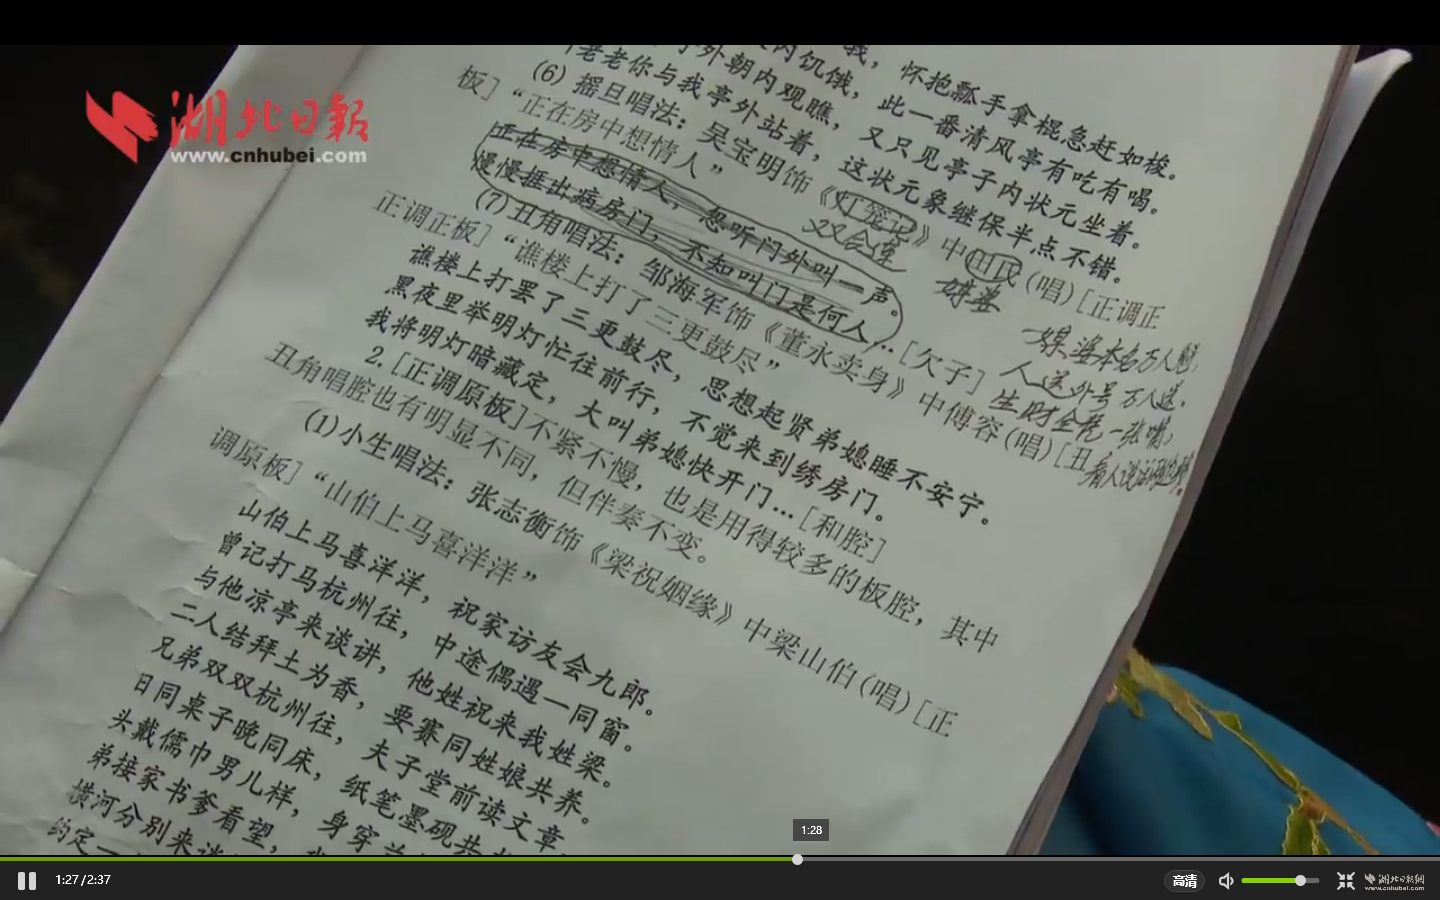 湖北日報
www.cnhubei.com
我，怀抱瓢手拿棍急赶如梭。
内饥饿，此一番清风亭有吃有喝。
外朝内观瞧，又只见亭子内状元坐着。
老老你与我亭外站着，这状元象继保半点不错。
(6) 摇旦唱法：吴宝明饰《灯笼记》中田氏(唱)［正调正
双合莲
媒婆
板］“正在房中想情人”
正在房中想情人，忽听门外叫一声。
慢慢捱出病房门，不知叫门是何人…［欠子］
媒婆本名万人
人送外号万人迷，
生财全凭一张嘴，
看人说话
(7) 丑角唱法：邹海军饰《董永卖身》中傅容(唱)［丑
正调正板］“谯楼上打了三更鼓尽”
谯楼上打罢了三更鼓尽，思想起贤弟媳睡不安宁。
黑夜里举明灯忙往前行，不觉来到绣房门。
我将明灯暗藏定，大叫弟媳快开门…［和腔］
2. ［正调原板］不紧不慢，也是用得较多的板腔，其中
丑角唱腔也有明显不同，但伴奏不变。
(1) 小生唱法：张志衡饰《梁祝姻缘》中梁山伯(唱)［正
调原板］“山伯上马喜洋洋”
山伯上马喜洋洋，祝家访友会九郎。
曾记打马杭州往，中途偶遇一同窗。
与他凉亭来谈讲，他姓祝来我姓梁。
二人结拜土为香，要赛同姓娘共养。
兄弟双双杭州往，夫子堂前读文章
日同桌子晚同床，纸笔墨砚共
头戴儒巾男儿样，身穿
弟接家书爹看望，
横河分别来谈
约定一
1:28
1:27/2:37
高清
湖北日报网
www.cnhubei.com